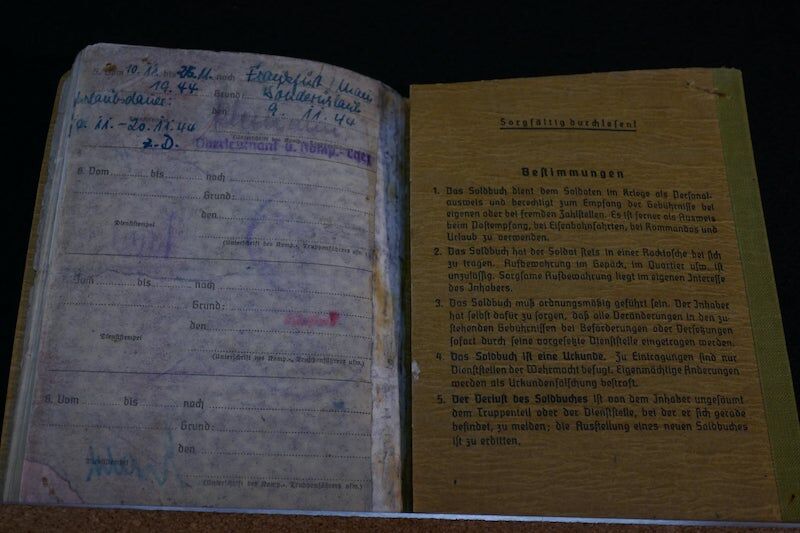 5. Vom 10. 11. bis 26. 11. nach Frankfurt / Main
19.44 Grund: Sonderurlaub
Urlaubsdauer: den 9. 11. 44
11. - 20. 11. 44
z. D. Oberleutnant u. Komp.-
6. Vom bis nach
Grund:
den
Dienststempel
(Unterschrift des Komp.-, Truppenführers usw.)
Vom bis nach
Grund:
den
Dienststempel
(Unterschrift des Komp.-, Truppenführers usw.)
8. Vom bis nach
Grund:
den
(Unterschrift des Komp.-, Truppenführers usw.)
Sorgfältig durchlesen!
Bestimmungen
1. Das Soldbuch dient dem Soldaten im Kriege als Personal-
ausweis und berechtigt zum Empfang der Gebührnisse bei
eigenen oder bei fremden Zahlstellen. Es ist ferner als Ausweis
beim Postempfang, bei Eisenbahnfahrten, bei Kommandos und
Urlaub zu verwenden.
2. Das Soldbuch hat der Soldat stets in einer Rocktasche bei sich
zu tragen. Aufbewahrung im Gepäck, im Quartier usw. ist
unzulässig. Sorgsame Aufbewahrung liegt im eigenen Interesse
des Inhabers.
3. Das Soldbuch muß ordnungsmäßig geführt sein. Der Inhaber
hat selbst dafür zu sorgen, daß alle Veränderungen in den zu-
stehenden Gebührnissen bei Beförderungen oder Versetzungen
sofort durch seine vorgesetzte Dienststelle eingetragen werden.
4. Das Soldbuch ist eine Urkunde. Zu Eintragungen sind nur
Dienststellen der Wehrmacht befugt. Eigenmächtige Änderungen
werden als Urkundenfälschung bestraft.
5. Der Verlust des Soldbuches ist von dem Inhaber ungesäumt
dem Truppenteil oder der Dienststelle, bei der er sich gerade
befindet, zu melden; die Ausstellung eines neuen Soldbuches
ist zu erbitten.